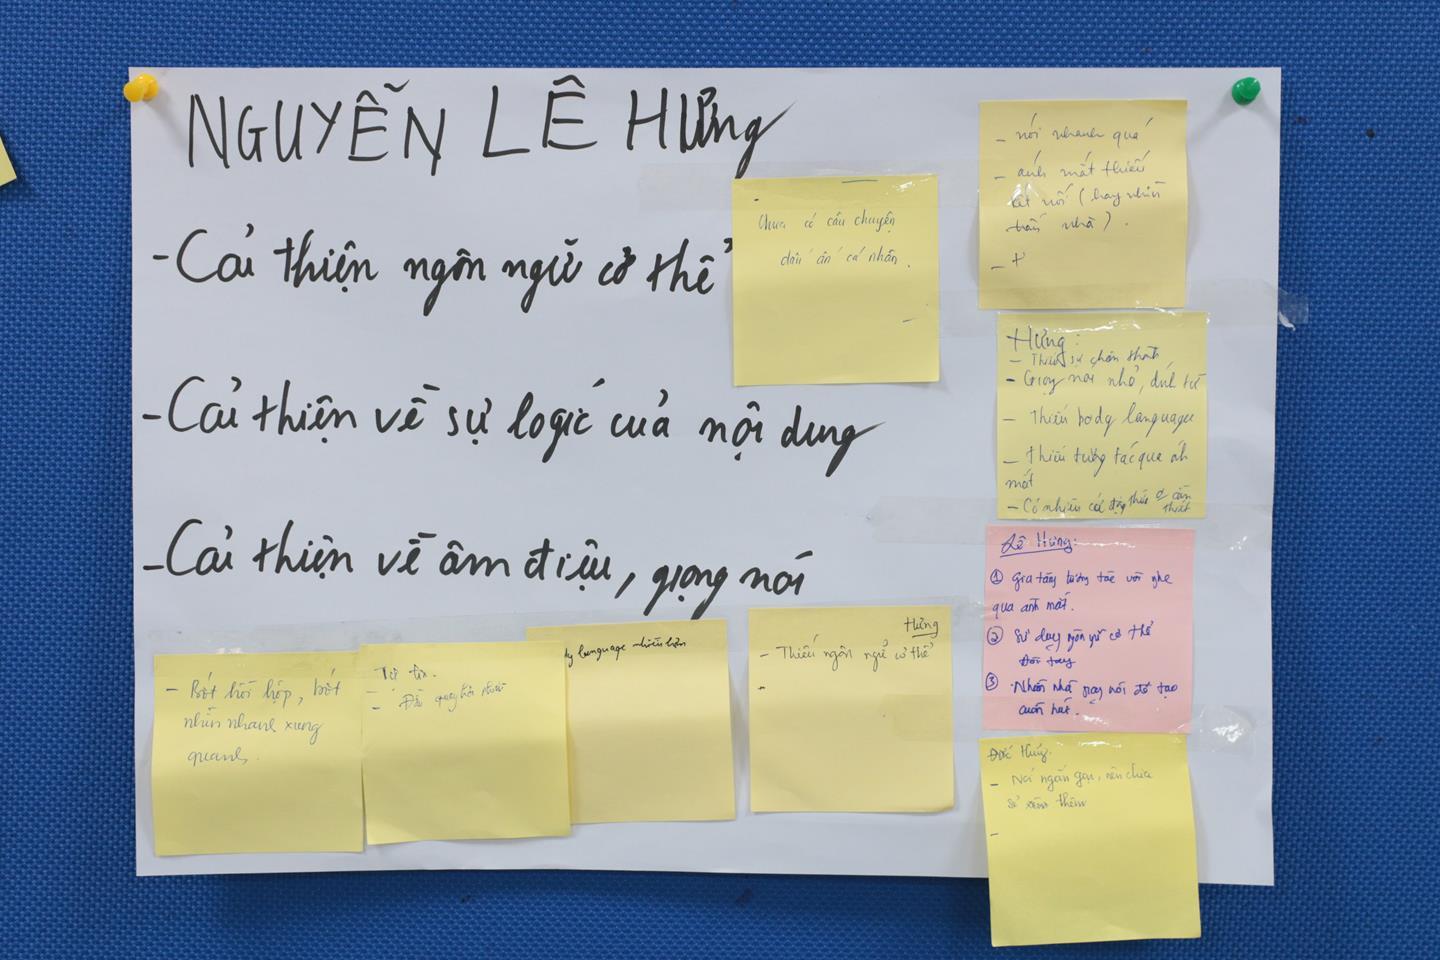 NGUYỄN LÊ HƯng
- Cải thiện ngôn ngữ cơ thể
- Cải thiện về sự logic của nội dung
- Cải thiện về âm điệu, giọng nói
- Chưa có câu chuyện
dấu ấn cá nhân.
- nói nhanh quá
- ánh mắt thiếu
kết nối (hay nhìn
trần nhà).
- t
Hưng:
- Thiếu sự chân thật
- Giọng nói nhỏ, dính từ
- Thiếu body language
- Thiếu tương tác qua ánh
mắt
- Có nhiều cử động thừa cần
thiết
Lê Hưng:
① Gia tăng tương tác với nghe
qua ánh mắt.
② Sử dụng ngôn ngữ cơ thể
③ Nhấn nhá giọng nói để tạo
cuốn hút.
- Nói ngắn gọn, nên chia
sẻ thêm
-
- Bớt hồi hộp, bớt
nhìn nhanh xung
quanh.
Tự tin.
language nhiều hơn
Hưng
- Thiếu ngôn ngữ cơ thể
-